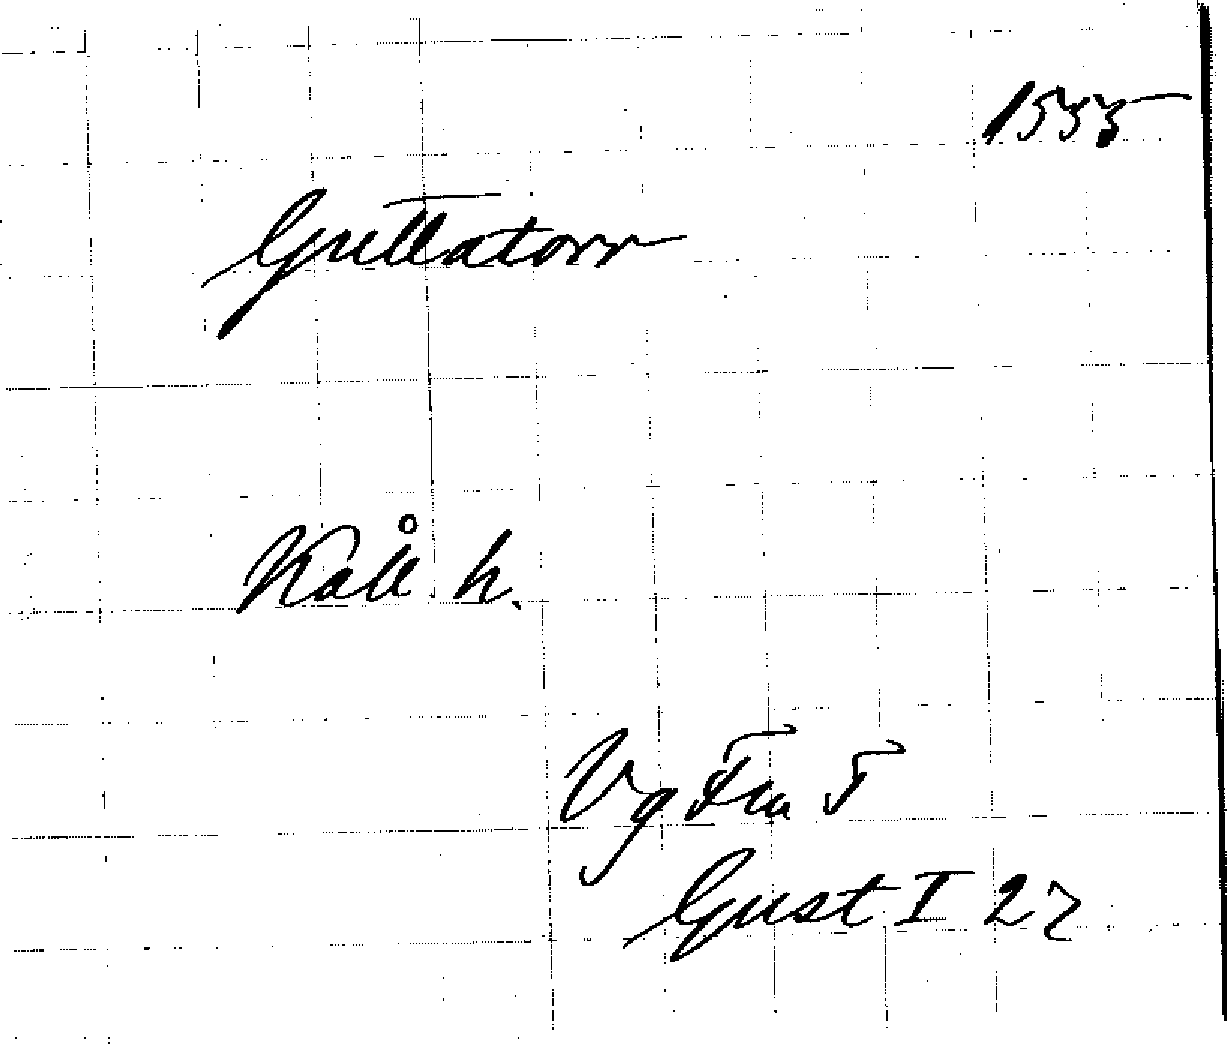 1555
Gullatorr
Kåll h.
Vg 5
Gust I 27